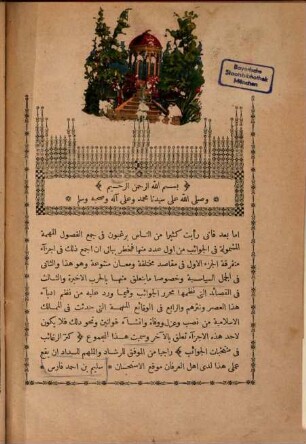 Bayerische
Staatsbibliothek
München
﴿ بسم الله الرحمن الرحيم ﴾
وصلى الله على سيدنا محمد وعلى آله وصحبه وسلم
اما بعد فانى رأيت كثيرا من الناس يرغبون فى جمع الفصول المهمة
المشمولة فى الجوائب من اول عدد منها فخطر ببالى ان اجمع ذلك فى اجزآء
متفرقة الجزء الاول فى مقاصد مختلفة ومعان متنوعة وهو هذا والثانى
فى الجمل السياسية وخصوصا ما يتعلق منها بالحرب الاخيرة والثالث
فى القصائد التى نظمها محرر الجوائب وفيما ورد عليه من نظم ادباء
هذا العصر ونثرهم والرابع فى الوقائع المهمة التى حدثت فى الممالك
الاسلامية من نصب وعزل ووفاة وانشاء قوانين ونحو ذلك فلا يكون
لاحد هذه الاجزآء تعلق بالآخر وسميت هذا المجموع ﴿ كنز الرغائب
فى منتخبات الجوائب ﴾ راجيا من الموفق للرشاد والملهم للسداد ان يقع
عملى هذا لدى اهل العرفان موقع الاستحسان ٭ سليم بن احمد فارس ٭